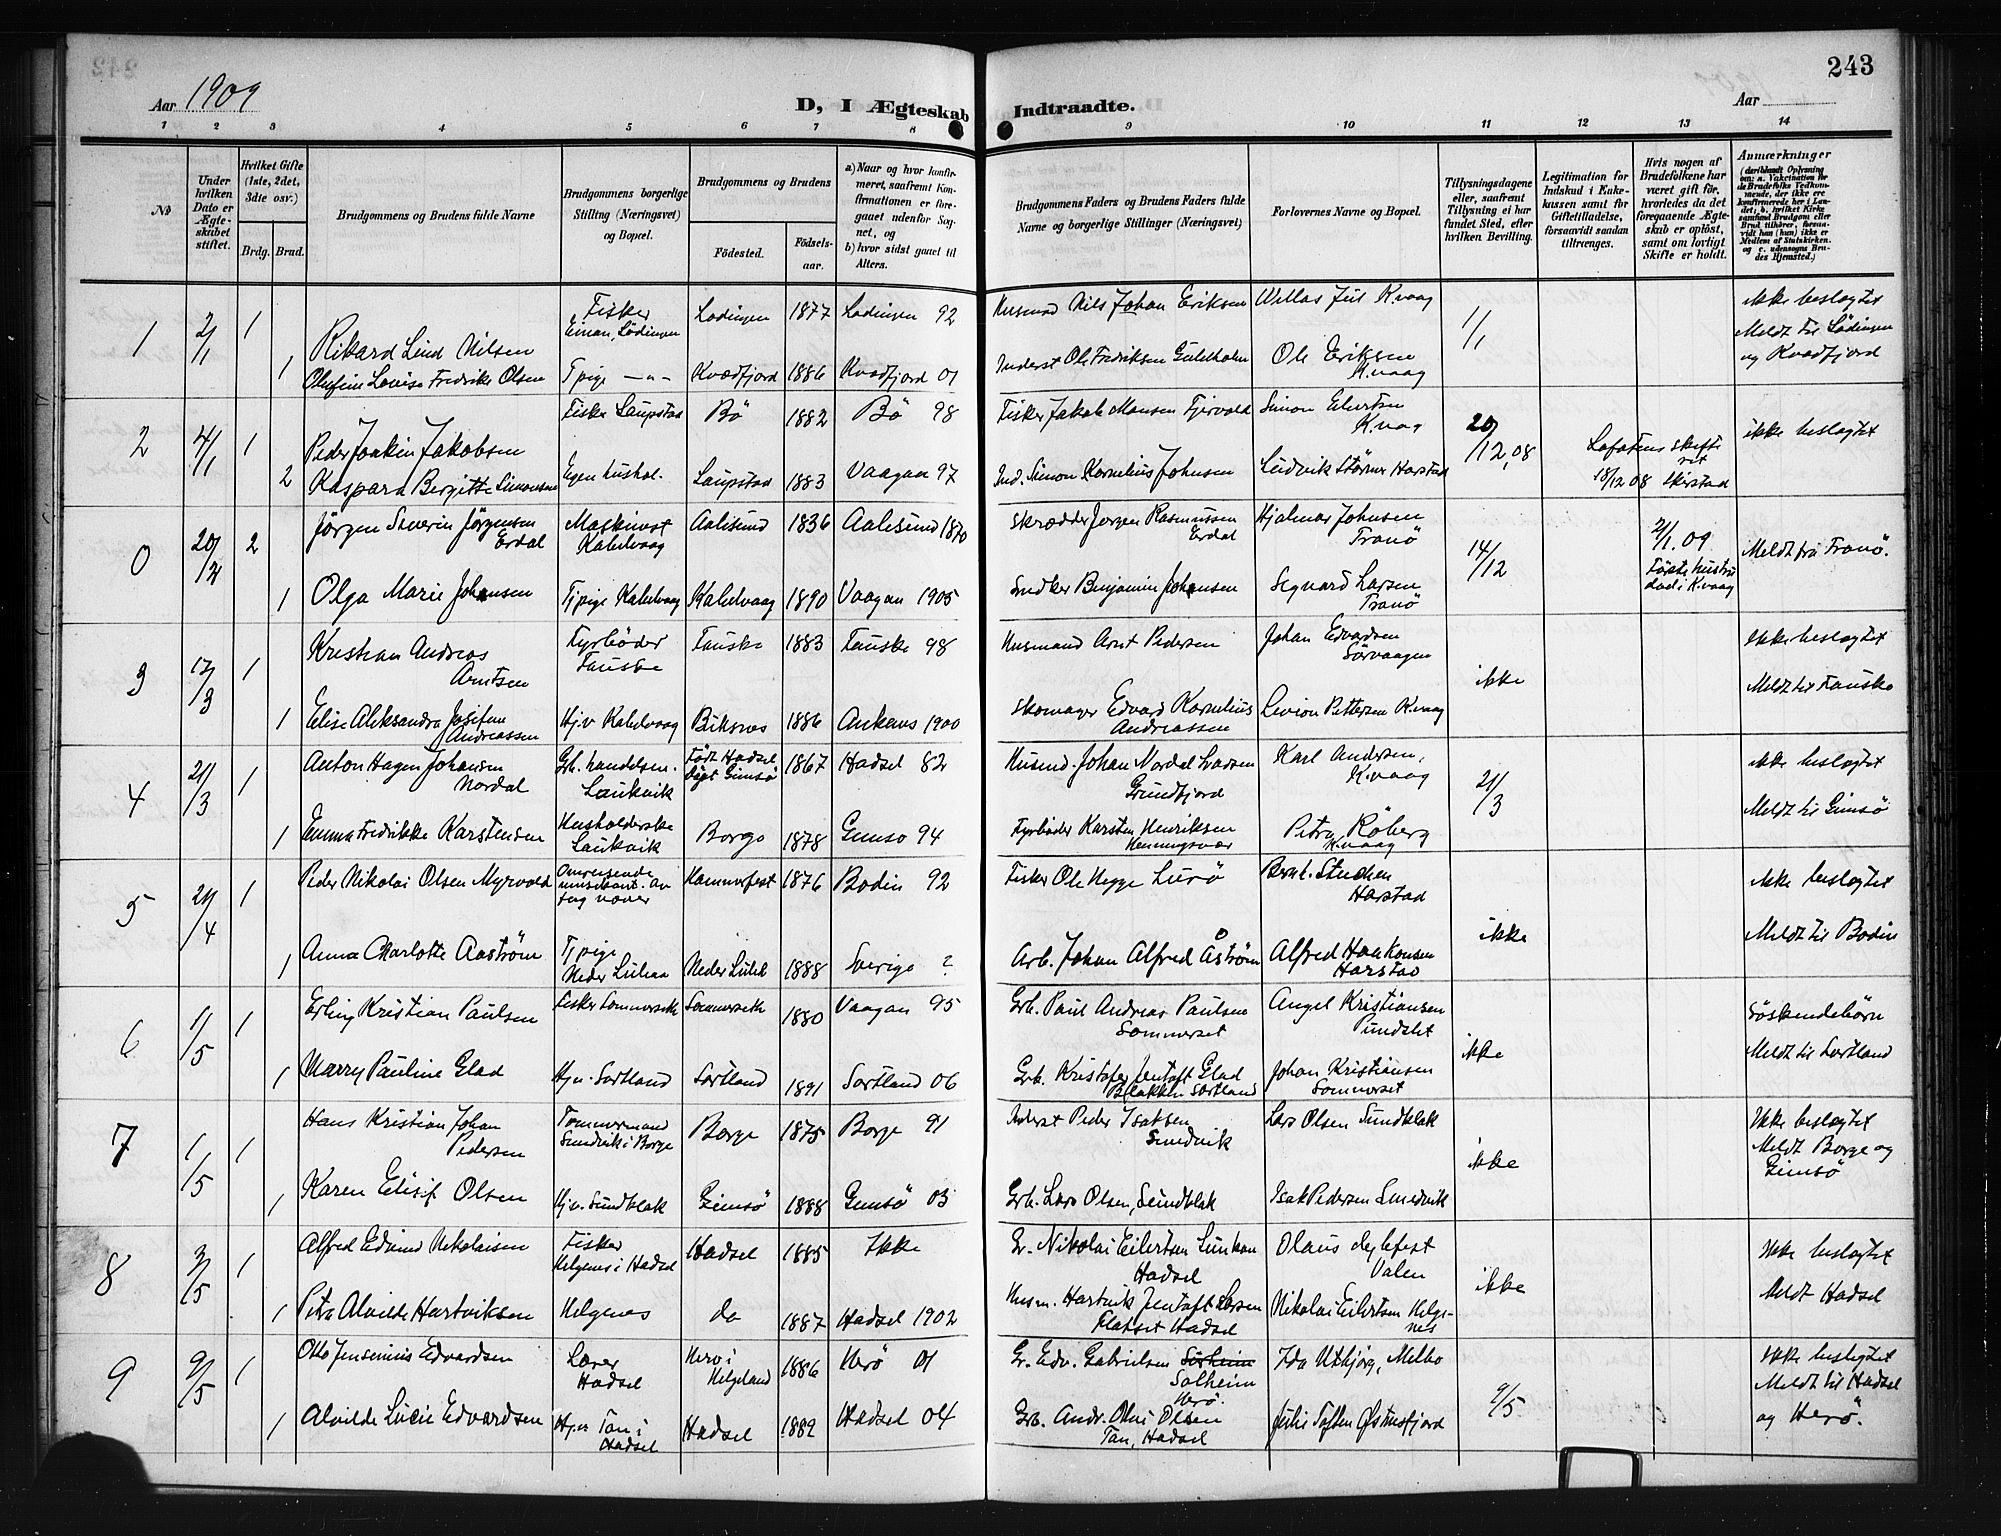 243
Aar 1909
D, I Ægteskab Indtraadte.
Aar
1 2 3 4 5 6 7 8 9 10 11 12 13 14
№
Under hvilken Dato er Ægteskabet stiftet.
Hvilket Gifte (1ste, 2det, 3die osv.)
Brdg. Brud.
Brudgommens og Brudens fulde Navne
Brudgommens borgerlige Stilling (Næringsvei) og Bopæl.
Brudgommens og Brudens
Födested.
Födselsaar.
a) Naar og hvor konfirmeret, saafremt Konfirmationen er foregaaet udenfor Sognet, og
b) hvor sidst gaaet til Alters.
Brudgommens Faders og Brudens Faders fulde Navne og borgerlige Stillinger (Næringsvei)
Forlovernes Navne og Bopæl.
Tillysningsdagene eller, saafremt Tillysning ei har fundet Sted, efter hvilken Bevilling.
Legitimation for Indskud i Enkekassen samt for Giftetilladelse, forsaavidt saadan tiltrænges.
Hvis nogen af Brudefolkene har været gift för, hvorledes da det foregaaende Ægteskab er oplöst, samt om lovligt Skifte er holdt.
Anmærkninger
1 2/1 1 Rikard Lind Nilsen Fisker Einan, Lödingen Lodingen 1877 Lodingen 92 Husmand Nils Johan Eriksen Willas Jul Kvaag 1/1 ikke beslægtet
1 Olufine Lovise Fredrikke Olsen Tpige —"— Kvædfjord 1886 Kvædfjord 01 Inderst Ole Fredriksen Guleholm Ole Eriksen Kvaag Meldt til Lödingen og Kvædfjord
2 4/1 1 Peder Joakim Jakobsen Fisker Laupstad Bö 1882 Bö 98 Fisker Jakob Monsen Fjervold Simon Eilertsen Kvaag 20/12,08 ikke beslægtet
2 Kaspara Bergitte Simonsen Egen hushol. Laupstad 1883 Vaagan 97 Ind. Simon Kornelius Johnsen Ludvik Störmer Harstad Lofotens skifteret 18/12 08 Skirstad
0 20/2 2 Jörgen Severin Jörgensen Erdal Maskinist Kabelvaag Aalesund 1836 Aalesund 1870 Skrædder Jorgen Rasmussen Erdal Hjalmar Johnsen Tranö 14/12 2/1.09 Förste hustru död i Kvaag Meldt fra Tranö.
1 Olga Marie Johansen Tjpige Kabelvaag Kabelvaag 1890 Vaagan 1905 Snedker Benjamin Johansen Sigvard Larsen Tranö
3 17/3 1 Kristian Andreas Arntsen Fyrböder Fauske Fauske 1883 Fauske 98 Husmand Arnt Pedersen Johan Edvardsen Sörvaagen ikke Ikke beslægtet
1 Elise Aleksandra Josefine Andreassen Hj.v Kabelvaag Buksnes 1886 Ankenes 1900 Skomager Edvard Kornelius Andreassen Levion Pettersen Kvaag Meldt til Fauske
4 21/3 1 Anton Hagen Johansen Nordal Grb. handelsm. Laukvik Född Hadsel, Gimsö 1867 Hadsel 82 Husmd. Johan Nordal Grundfjord Karl Andersen, Kvaag 21/3 ikke beslægtet
1 Emma Fredrikke Karstensen Husholderske Laukvik Borge 1878 Gimso 94 Fyrböder Karsten Henriksen Henningsvær Petra Röberg Kvaag Meldt til Gimsö
5 21/4 1 Peder Nikolai Olsen Myrvold Omreisende Hammerfest 1876 Bodin 92 Fisker Ole Hegge Lurö Bernt. Harstad ikke ikke beslægtet
1 Anna Charlotte Aaström Tjpige Neder Luleå Neder Luleå 1888 Sverige ? Arb. Johan Alfred Åström Alfred Haakonsen Harstad Meldt til Bodin
6 1/5 1 Erling Kristian Paulsen Fisker Sommersæth Sommersæth 1880 Vaagan 95 Grb. Paul Andreas Paulsen Sommerset Angel Kristiansen Pundslet ikke Söskendebörn
1 Marry Pauline Glad Hjv. Sortland Sortland 1891 Sortland 06 Grb. Kristofer Jentoft Glad Blokken Sortland Johan Kristiansen Sommerset Meldt til Sortland
7 1/5 1 Hans Kristian Johan Pedersen Tommermand Smedvik i Borge Borge 1875 Borge 91 Inderst Peder Isaksen Smedvik Lars Olsen Sundklak ikke Ikke beslægtet
1 Karen Elisif Olsen Hjv. Sundklak Gimsö 1888 Gimsö 03 Grb. Lars Olsen, Sundklak Isak Pedersen Smedvik Meldt Borge og Gimsö
8 2/5 1 Alfred Edvind Nikolaisen Fisker Helgenes i Hadsel Hadsel 1885 Ikke Gr. Nikolai Eilertsen Hadsel Olaus Valen ikke Ikke beslægtet
1 Petra Alvilde Hartviksen Helgenes do 1887 Hadsel 1902 Husm. Hartvik Jentoft Larsen Flatset Hadsel Nikolai Eilertsen Helgenes Meldt Hadsel
9 9/5 1 Otto Jensenius Edvardsen Lærer Hadsel Herö i Helgeland 1886 Herö 01 Gr. Edv. Gabrielsen Solheim Herö. Ida Utbjörg, Melbo 9/5 Ikke beslægtet
1 Alvilde Lucie Edvardsen Hjv. Tan i Hadsel Hadsel 1882 Hadsel 04 Grb. Andr. Olsen Tan, Hadsel Julie Toften Östnesfjord Meldt til Hadsel og Herö.